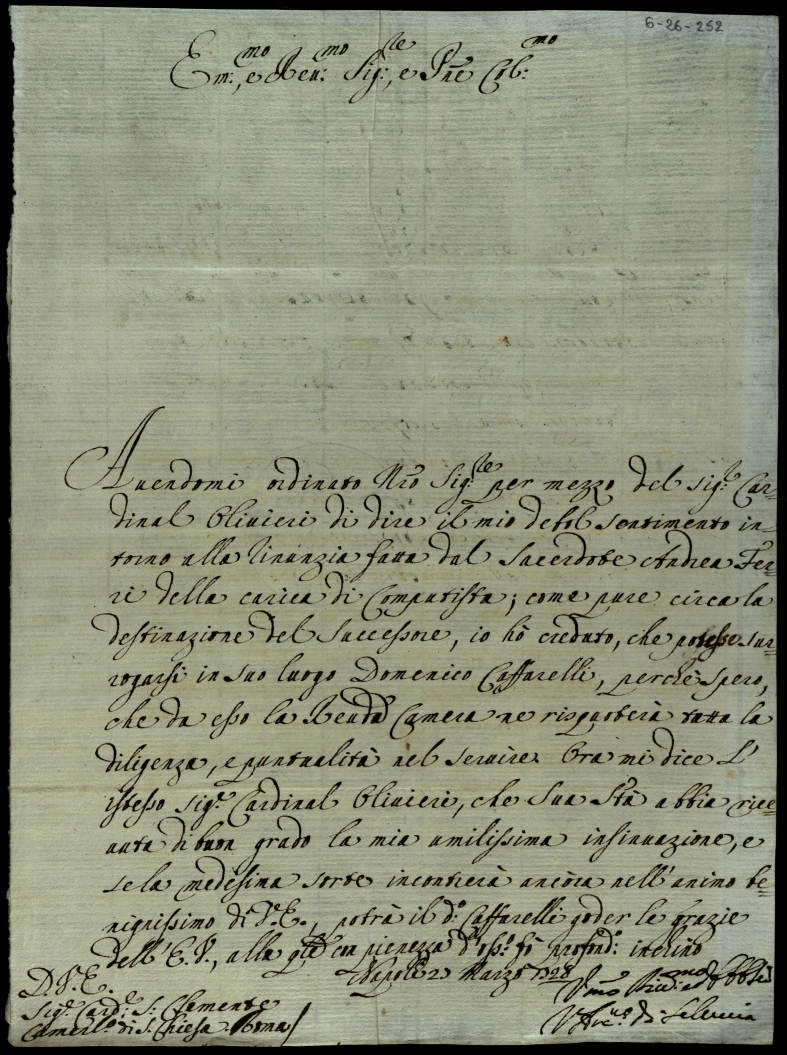 6-26-252
Em:mo, e Reu:mo Sig:re, e Pne Col:mo
Auendomi ordinato Nro Sig:re per mezzo del sig:r Car=
dinal Oliuieri di dire il mio debol sentimento in=
torno alla rinunzia fatta dal Sacerdote Andrea Fer=
ri della carica di Computista; come pure circa la
destinazione del Successore, io hò creduto, che potesse sur=
rogarsi in suo luogo Domenico Caffarelli, perche spero,
che da esso la Reu:da Camera ne riscuoterà tutta la
diligenza, e puntualità nel seruire. Ora mi dice l'
istesso sig:r Cardinal Oliuieri, che Sua Stà abbia rice=
uuta di buon grado la mia umilissima insinuazione, e
se la medesima sorte incontrerà ancora nell'animo be=
nignissimo di V.E., potrà il d:o Caffarelli goder le grazie
dell'E.V., alla qle con pienezza d'oss:o fò profond:o inchino
Napoli 2 Marzo 1728
D.V.E.
Sig:r Card:e S: Clemente
Camerl:o di S: Chiesa. Roma/
V:Arc:o di Seleucia